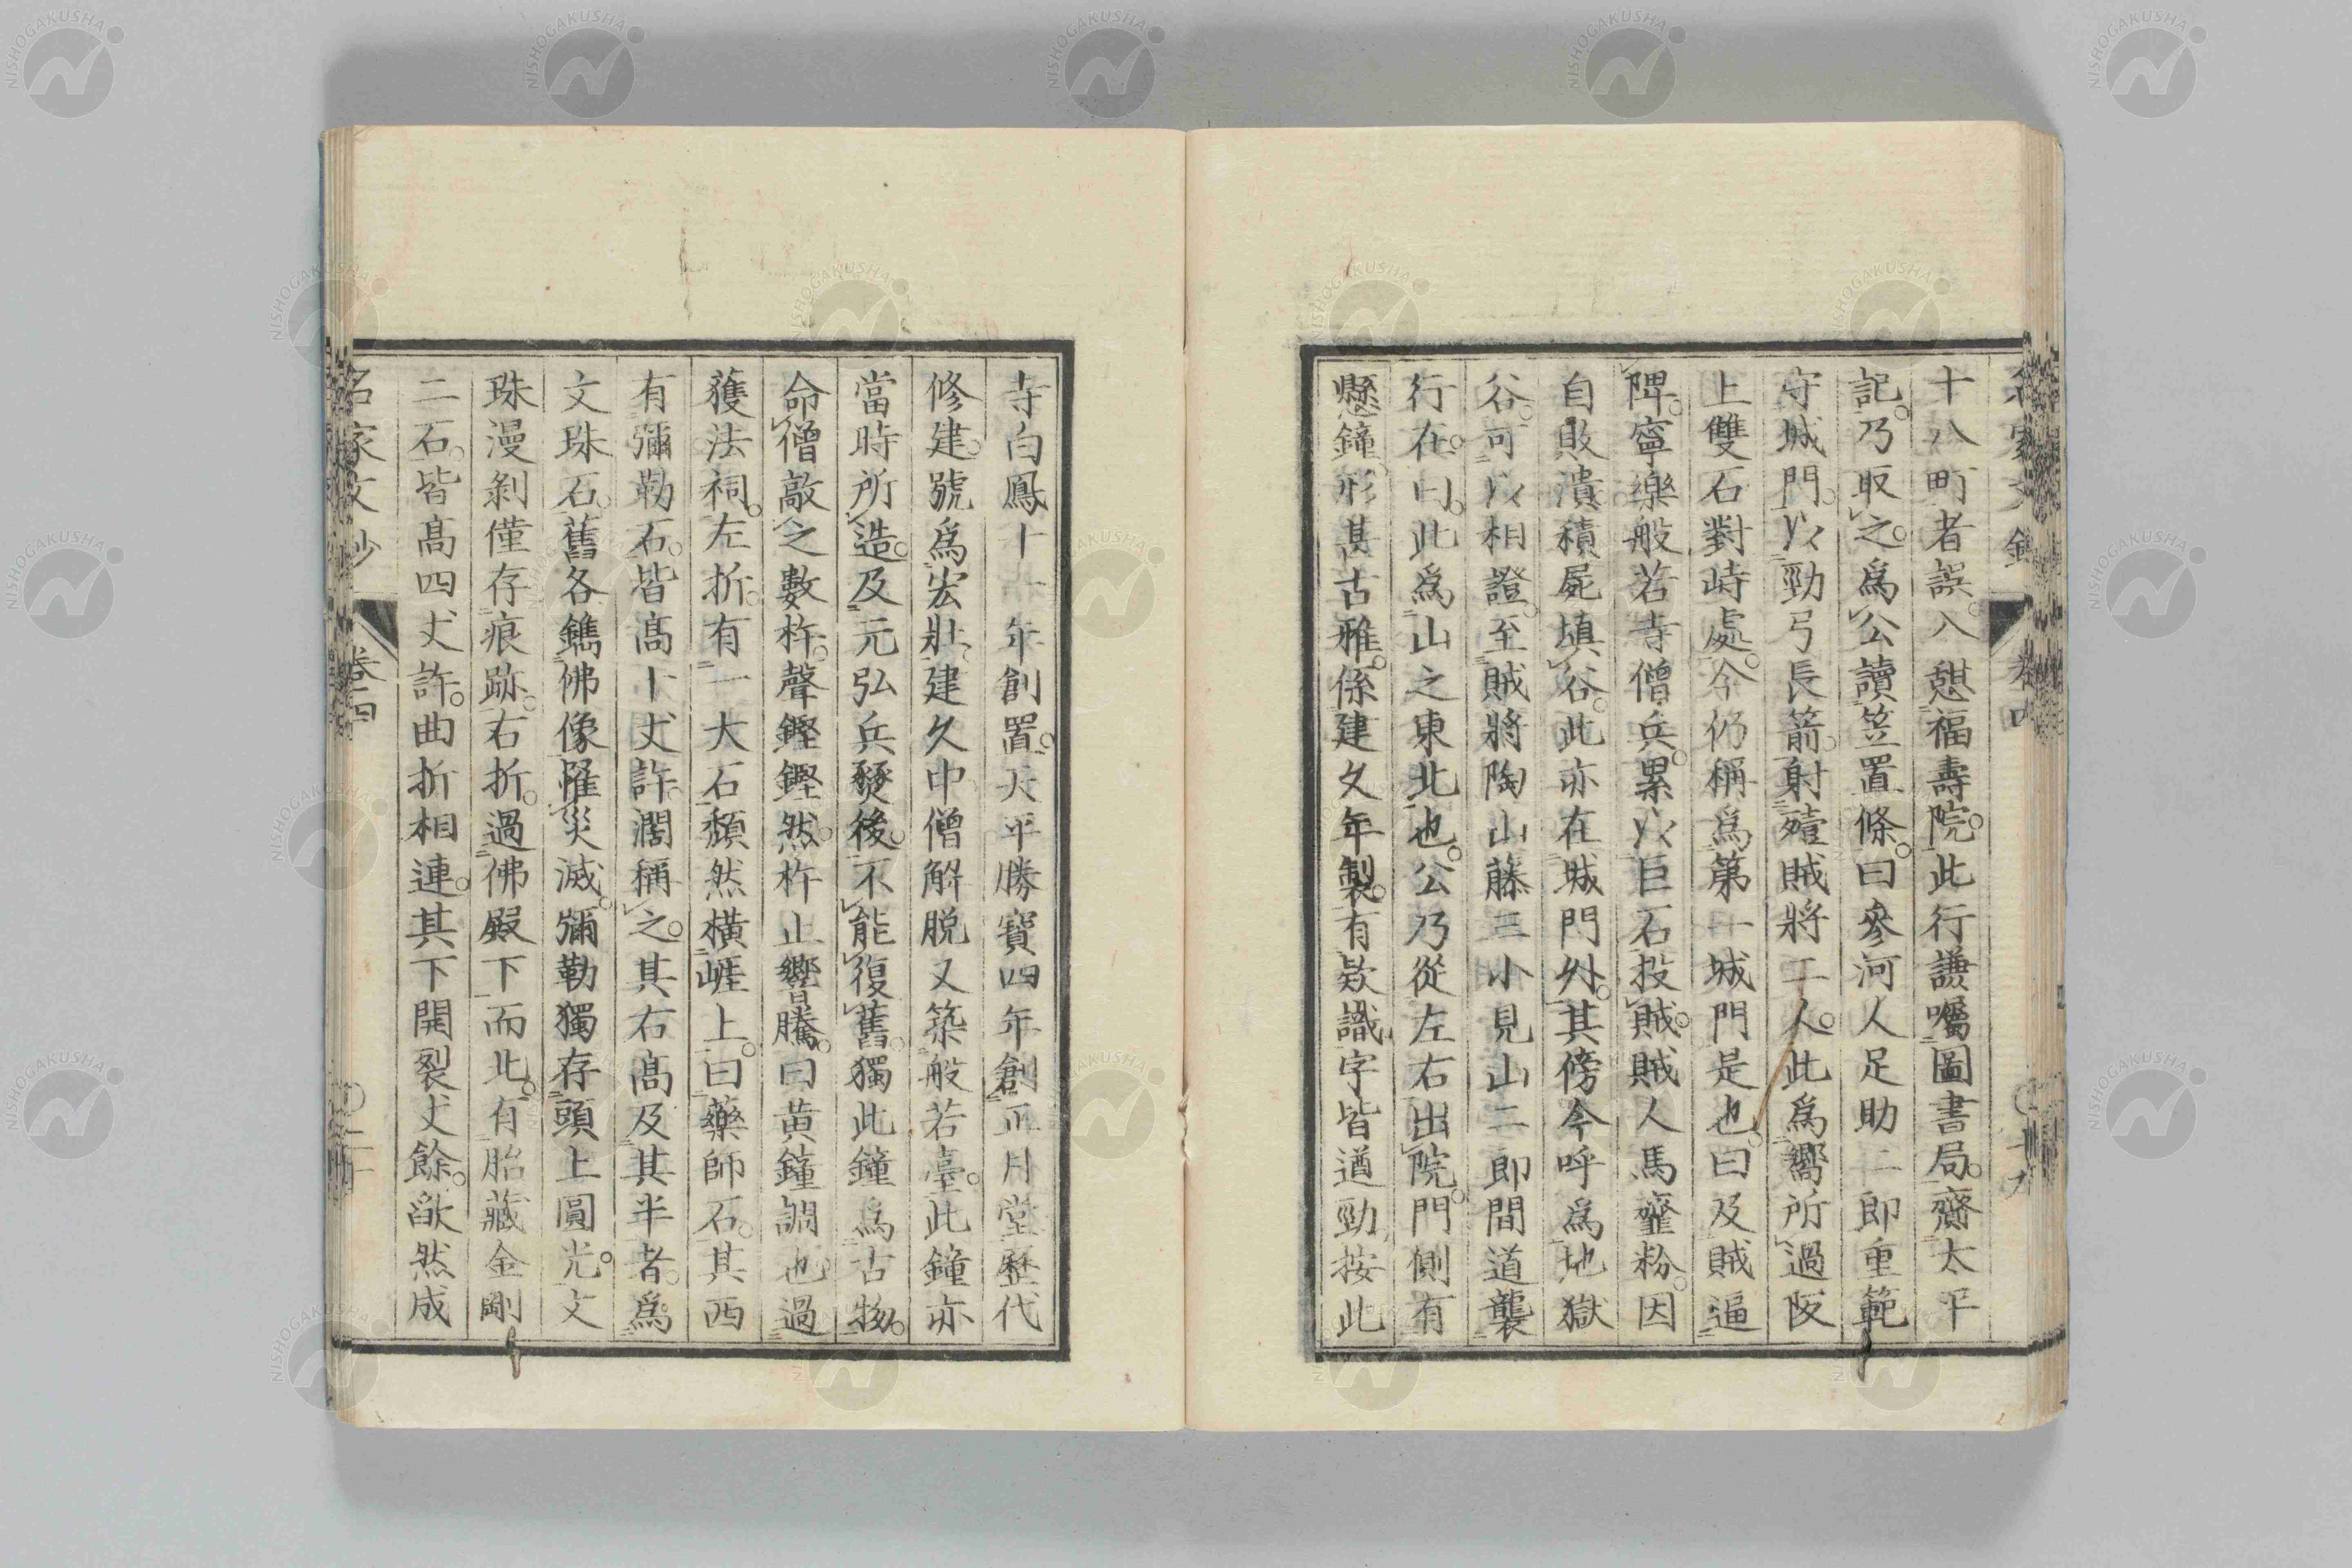 十八町者誤入憇福壽院。此行謙囑圖書局。齎太平
記。乃取之。爲公讀笠置條。曰參河人足助二郎重範
守城門。以勁弓長箭。射殪賊將二人。此爲嚮所過阪
上雙石對峙處。今仍稱爲第一城門是也。曰及賊逼
陴。寧樂般若寺僧兵。累以巨石投賊。賊人馬虀粉。因
自敗潰積屍塡谷。此亦在城門外。其傍今呼爲地獄
谷。可以相證。至賊將陶山藤三小見山二郎間道襲
行在。曰。此爲山之東北也。公乃從左右出院。門側有
懸鐘。形甚古雅。係建久年製。有欵識字皆遒勁按此
寺白鳳十一年創置。天平勝寶四年創正月堂歷代
修建。號爲宏壯。建久中僧解脱又築般若臺。此鐘亦
當時所造。及元弘兵燹後。不能復舊。獨此鐘爲古物。
命僧敲之數杵。聲鏗鏗然。杵止響騰。曰黄鐘調也過
獲法祠。左折。有一大石頽然橫崕上。曰藥師石。其西
有彌勒石。皆高十丈許濶稱之。其右高及其半者。爲
文珠石。舊各鐫佛像罹災滅。彌勒獨存頭上圓光。文
珠漫剝僅存痕跡。右折。過佛殿下而北。有胎藏金剛
二石。皆高四丈許。曲折相連。其下開裂丈餘。歃然成
名家文鈔 卷四